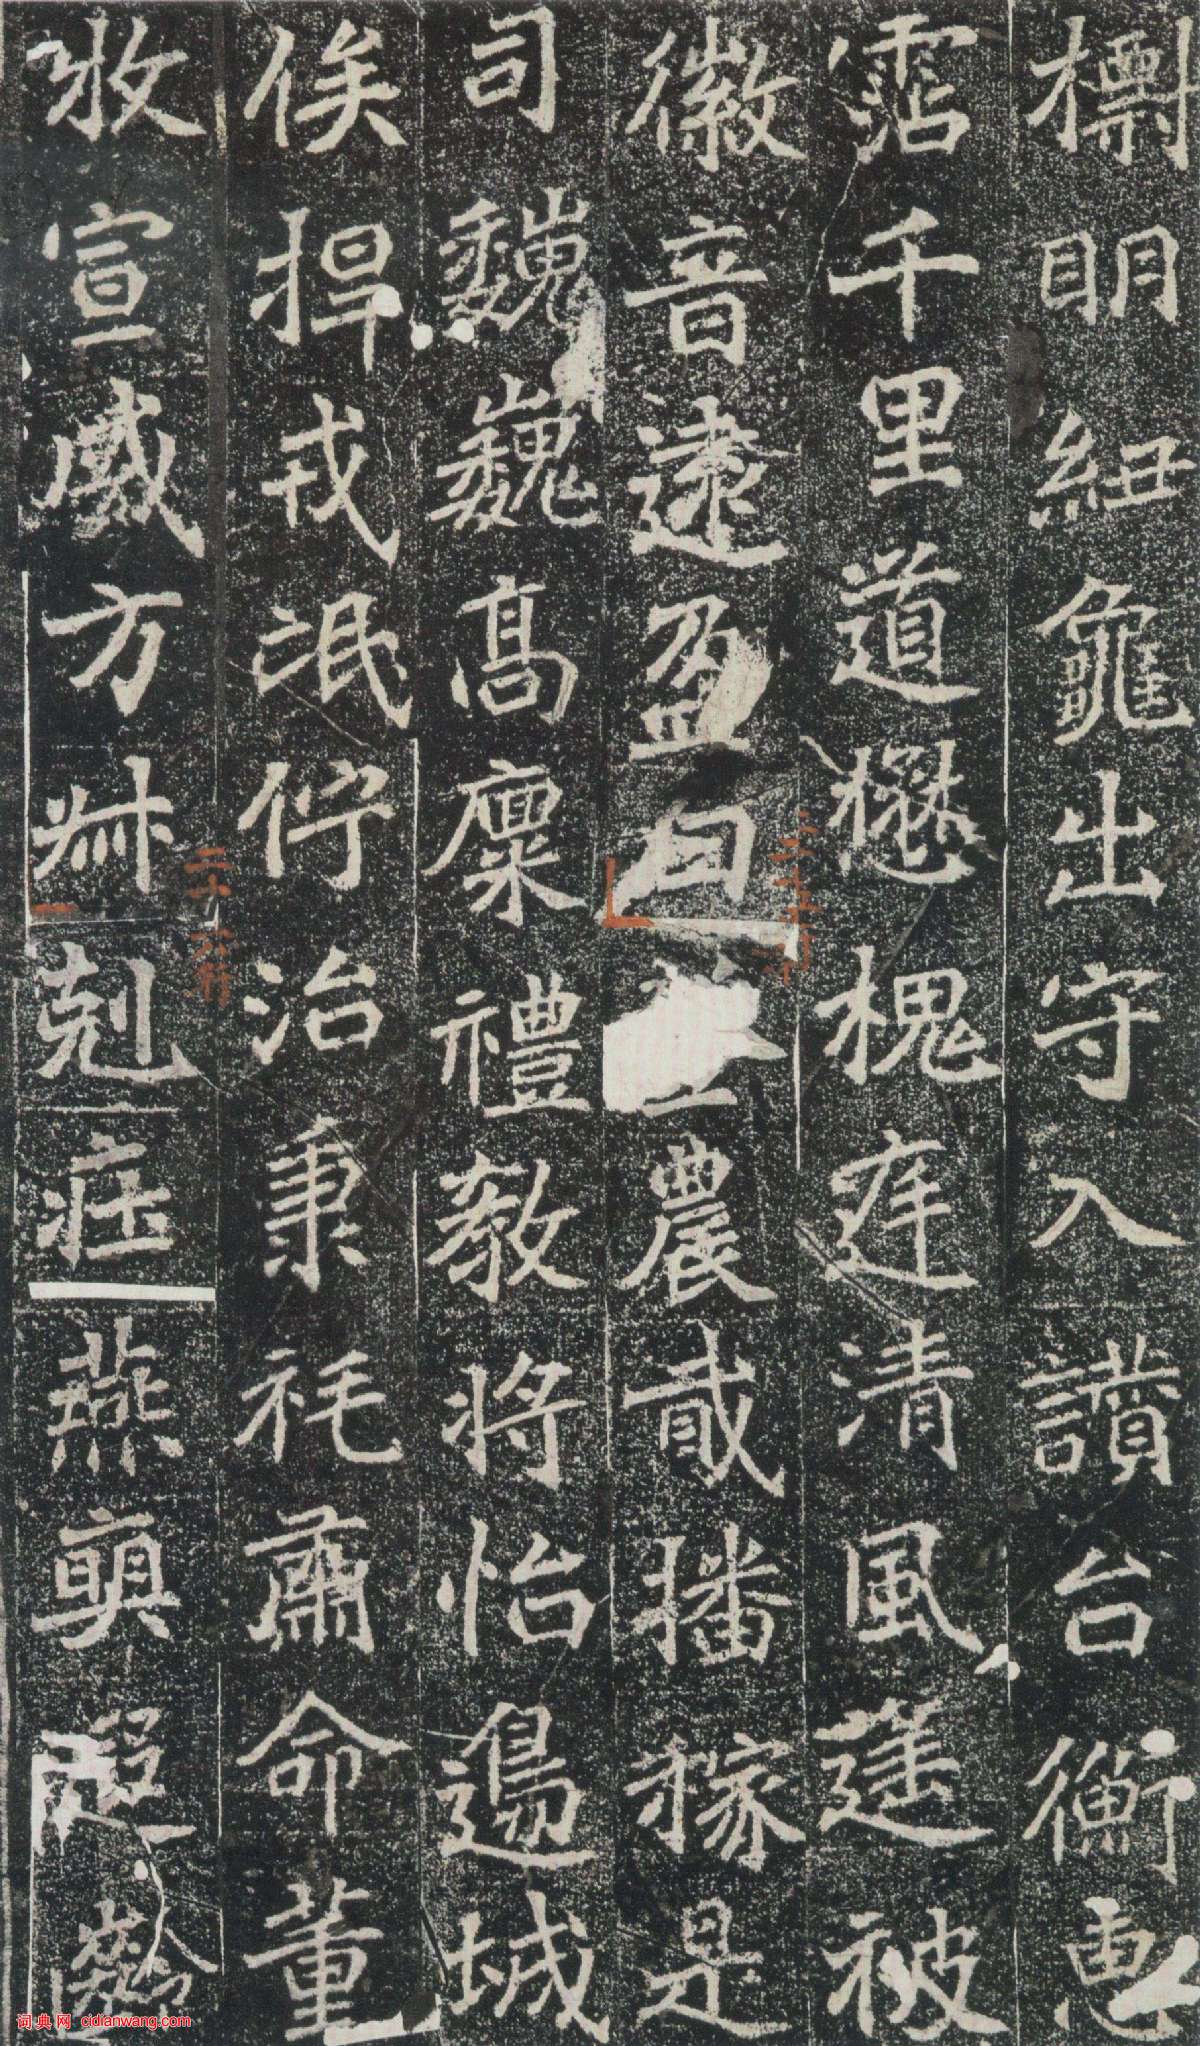 檦明紐龜出守入讚台衡惠
霑千里道懋槐庭清風蓬被
徽音遠盈曰農戢播稼是
司巍巍高廪禮教將怡邊城
俟捍戎氓佇治秉旄肅命董
牧宣威方叔剋莊燕奭
二十五行
二十六行
词典网 cidianwang.com